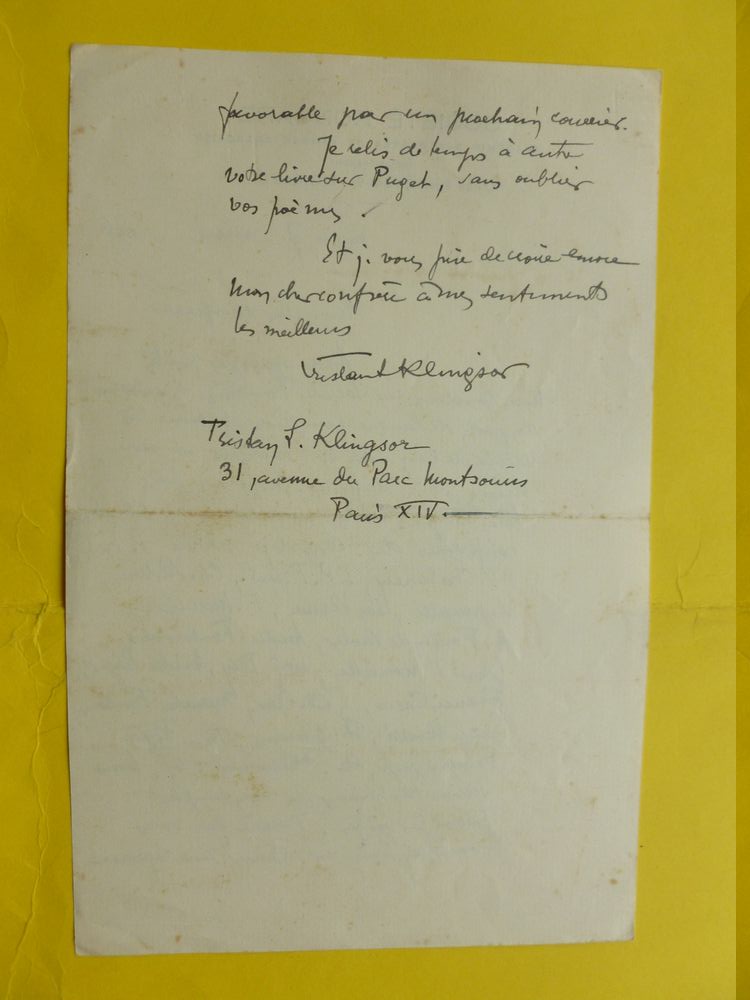 favorable par un prochain courrier.
Je relis de temps à autre
votre livre sur Puget, sans oublier
vos poèmes.
Et je vous prie de croire encore
mon cher confrère à mes sentiments
les meilleurs
Tristan L Klingsor
Tristan L. Klingsor
31, avenue du Parc Montsouris
Paris XIV.